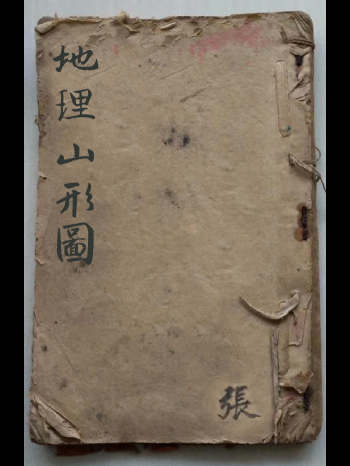 地理山形圖
張